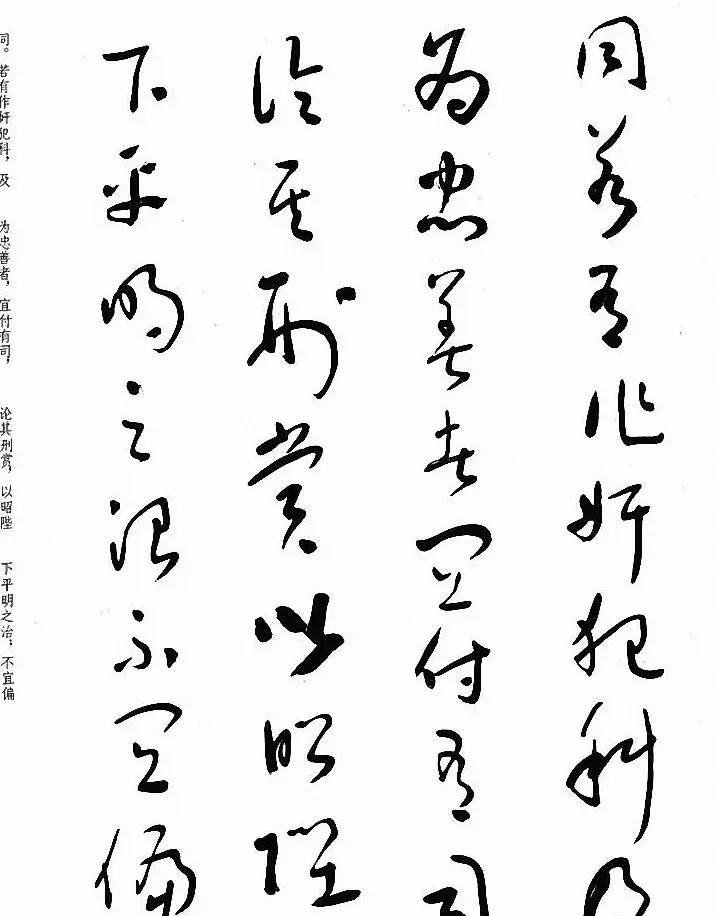 同若有作奸犯科及
为忠善者宜付有司
论其刑赏以昭陛
下平明之治不宜偏
同。若有作奸犯科，及 为忠善者，宜付有司， 论其刑赏，以昭陛 下平明之治；不宜偏